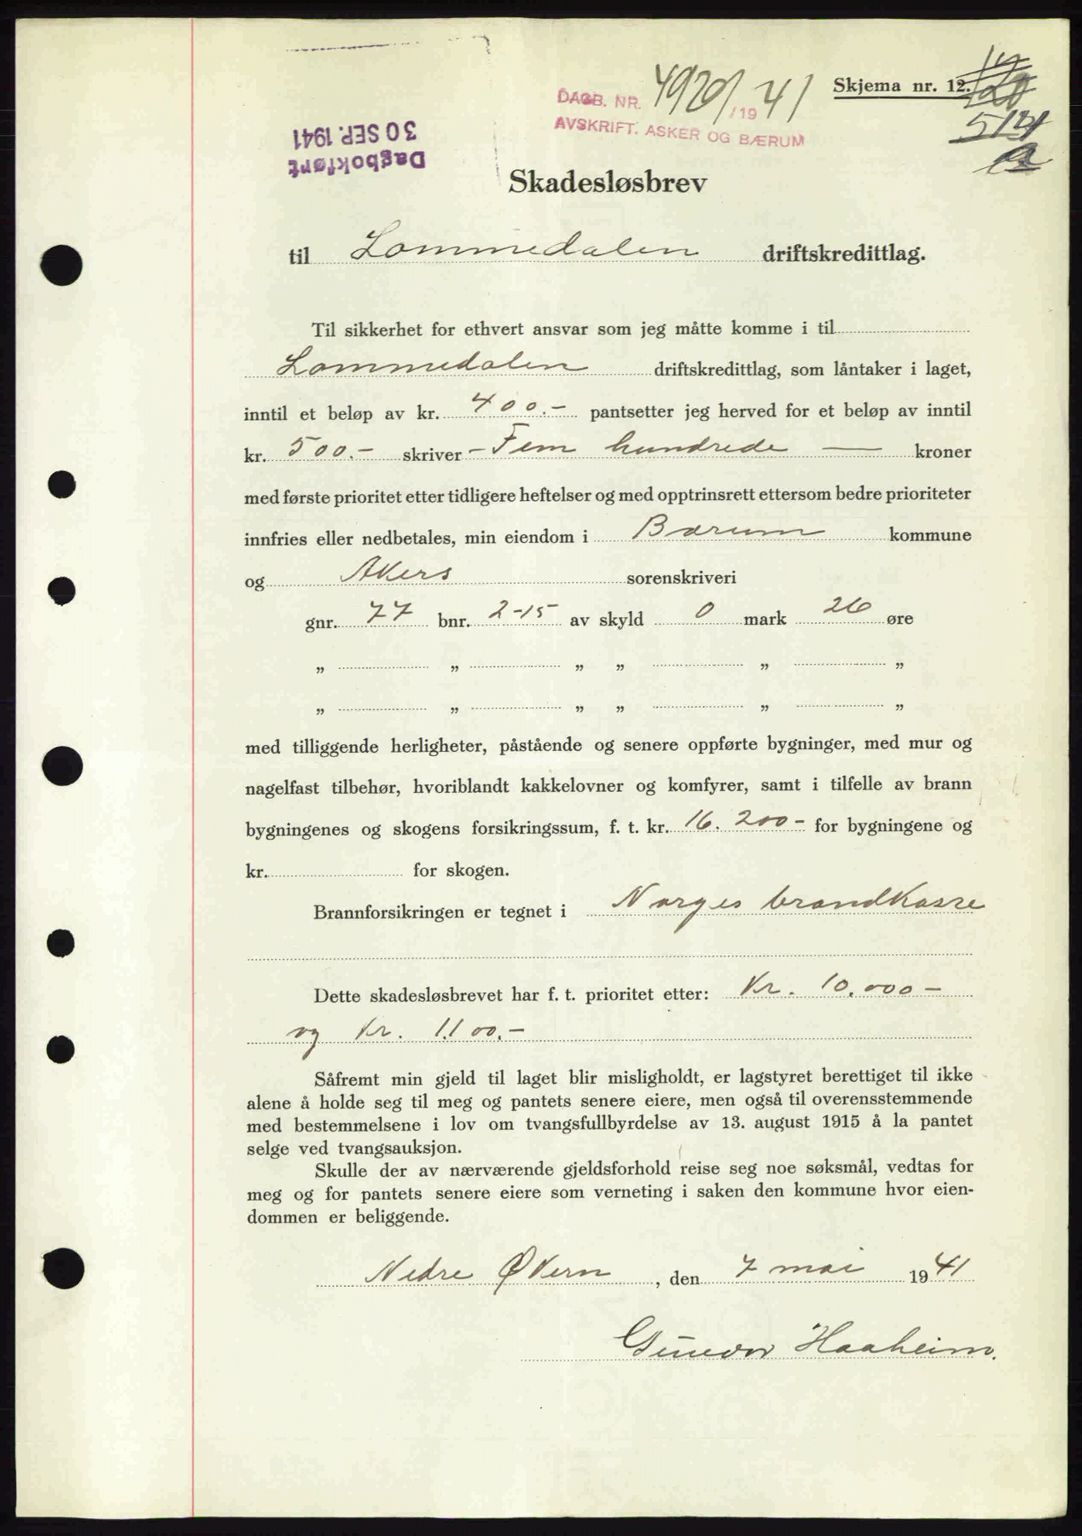 Skjema nr. 12.
DAGB. NR. 4920/1941
AVSKRIFT. ASKER OG BÆRUM
Dagbokført
30 SEP. 1941
Skadesløsbrev
til Lommedalen driftskredittlag.
Til sikkerhet for ethvert ansvar som jeg måtte komme i til
Lommedalen driftskredittlag, som låntaker i laget,
inntil et beløp av kr. 400.- pantsetter jeg herved for et beløp av inntil
kr. 500.- skriver - Fem hundrede — kroner
med første prioritet etter tidligere heftelser og med opptrinsrett ettersom bedre prioriteter
innfries eller nedbetales, min eiendom i Bærum kommune
og Akers sorenskriveri
gnr. 77 bnr. 2-15 av skyld 0 mark 26 øre
„ „ „ „ „ „
„ „ „ „ „ „
med tilliggende herligheter, påstående og senere oppførte bygninger, med mur og
nagelfast tilbehør, hvoriblandt kakkelovner og komfyrer, samt i tilfelle av brann
bygningenes og skogens forsikringssum, f. t. kr. 16.200- for bygningene og
kr. for skogen.
Brannforsikringen er tegnet i Norges brandkasse
Dette skadesløsbrevet har f. t. prioritet etter: Kr. 10.000-
og Kr. 1.100.-
Såfremt min gjeld til laget blir misligholdt, er lagstyret berettiget til ikke
alene å holde seg til meg og pantets senere eiere, men også til overensstemmende
med bestemmelsene i lov om tvangsfullbyrdelse av 13. august 1915 å la pantet
selge ved tvangsauksjon.
Skulle der av nærværende gjeldsforhold reise seg noe søksmål, vedtas for
meg og for pantets senere eiere som verneting i saken den kommune hvor eien-
dommen er beliggende.
Nedre Økern, den 7 mai 1941
Gunvor Haaheim.